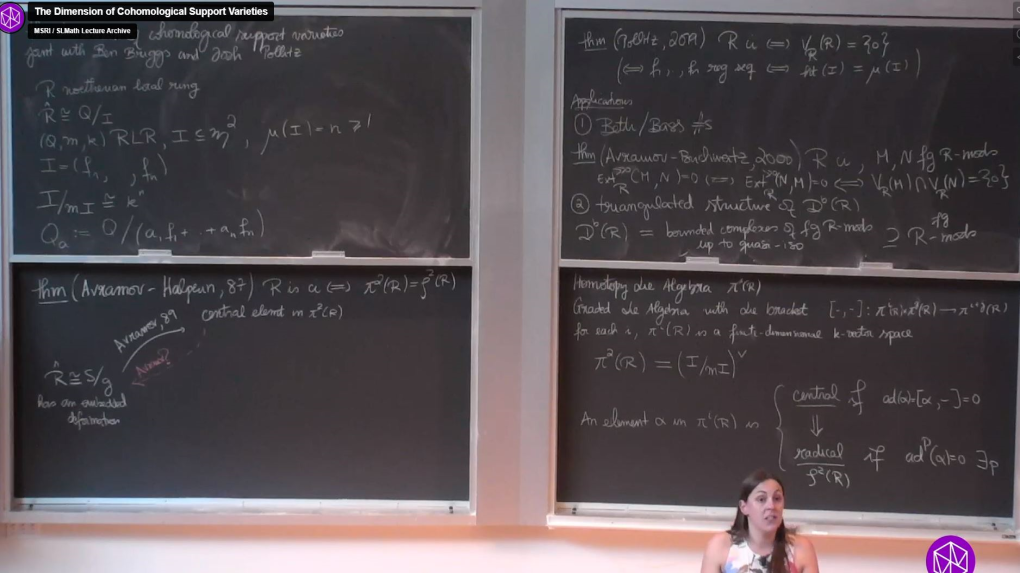 The Dimension of Cohomological Support Varieties
MSRI / SLMath Lecture Archive
cohomological support varieties
joint with Ben Briggs and Josh Pollitz
R noetherian local ring
R̂ ≅ Q/I
(Q, m, k) RLR, I ⊆ m², μ(I) = n ≥ 1
I = (f₁, , fₙ)
I/mI ≅ kⁿ
Qₐ := Q/(a₁f₁ + .. + aₙfₙ)
thm (Avramov - Halperin, 87) R is ci ⟺ π²(R) = ρ²(R)
central elemt in π²(R)
Avramov, 89
R̂ ≅ S/g
has an embedded
deformation
thm (Pollitz, 2019) R ci ⟺ V_R(R) = {0}
(⟺ f₁, , fₙ reg seq ⟺ ht(I) = μ(I))
Applications
① Betti/Bass #s
thm (Avramov - Buchweitz, 2000) R ci, M, N fg R-mods
Ext_R^{>>0}(M, N) = 0 ⟺ Ext_R^{>>0}(N, M) = 0 ⟺ V_R(M) ∩ V_R(N) = {0}
② triangulated structure of Dᵇ(R)
Dᵇ(R) = bounded complexes of fg R-mods ⊇ fg R-mods
up to quasi-iso
Homotopy Lie Algebra π*(R)
Graded Lie Algebra with Lie bracket [-,-]: πⁱ(R) × πʲ(R) → πⁱ⁺ʲ(R)
for each i, πⁱ(R) is a finite-dimensional k-vector space
π²(R) = (I/mI)ᵛ
An element α in πⁱ(R) is
central if ad(α) = [α, -] = 0
⇓
radical if adᵖ(α) = 0 ∃p
ρ²(R)